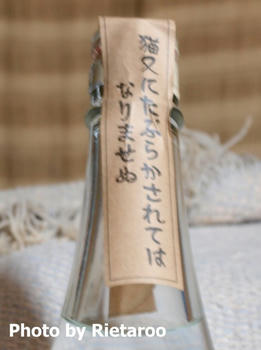 猫又にたぶらかされては
なりませぬ
Photo by Rietaroo